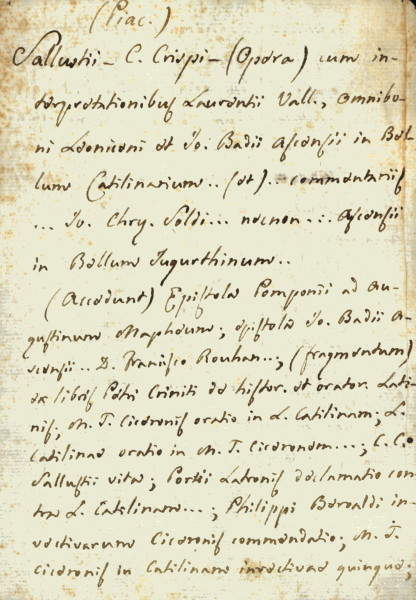 (Piac.)
Sallustii - C. Crispi - (Opera) cum in-
terpretationibus Laurentii Vall., Omnibo-
ni Leoniceni et Jo. Badii Ascensii in Bel-
lum Catilinarium .. (et) .. commentariis
... Jo. Chry. Soldi... necnon ... Ascensii
in Bellum Jugurthinum ..
(Accedunt) Epistola Pomponii ad Au-
gustinum Mapheum; epistola Jo. Badii A-
scensii .. D. Francisco Rouhan...; (fragmentum)
ex libris Petri Criniti de histor. et orator. Lati-
nis; M. T. Ciceronis oratio in L. Catilinam; L.
Catilinae oratio in M. T. Ciceronem ...; C. C.
Sallustii vita; Portii Latronis declamatio con-
tra L. Catilinam...; Philippi Beroaldi in-
vectivarum Ciceronis commendatio; M. T.
Ciceronis in Catilinam invectivae quinque;